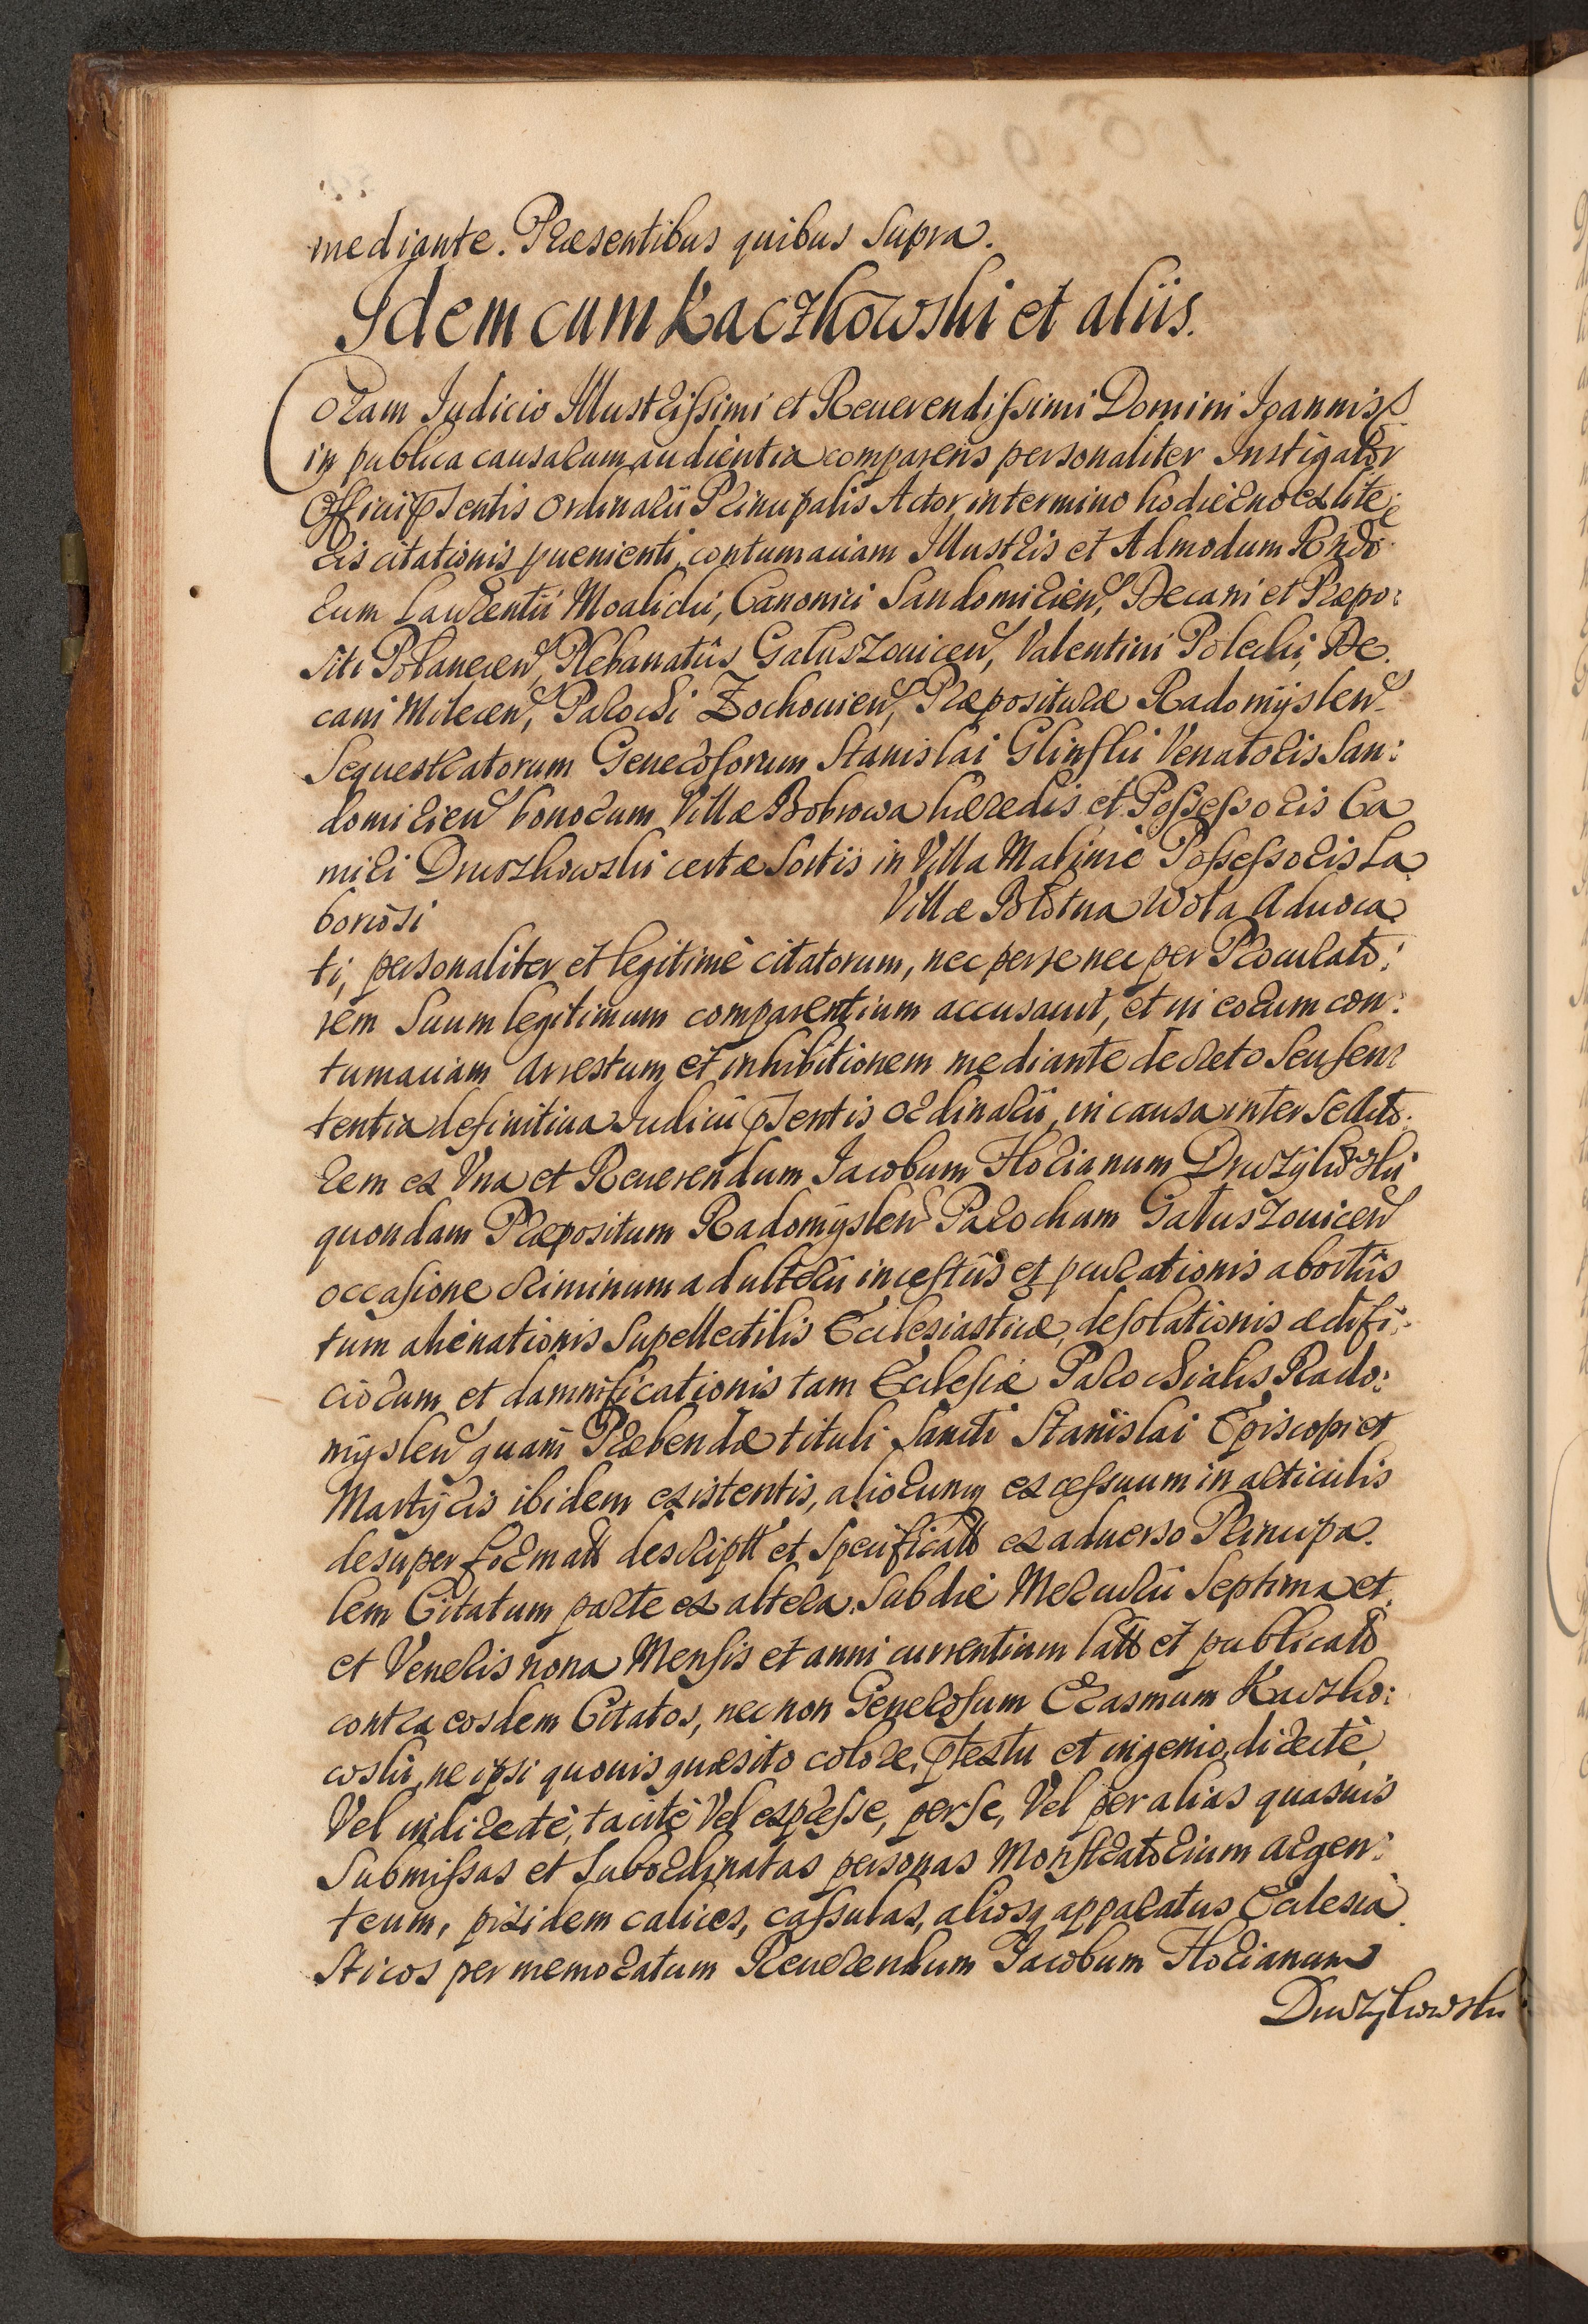 mediante. Præsentibus quibus Supra.
Idem cum Kaczkowski et aliis.
Coram Judicio Illustrissimi et Reuerendissimi Domini Joannis
in publica causarum audientia comparens personaliter Instigator
Officii pñtentis Ordinarii Principalis Actor, in termino hodierno ex lite:
ris citationis puenienti, contumaciam Illustris et Admodum Rñdo
rum Laurentii Moalicki, Canonici Sandomirien, Decani et Præpo:
siti Polanecen, Plebanatûs Galuszouicen, Valentini Polecki, De
cani Milecen, Parochi Zochouien, Præposituræ Radomÿslen
Sequestratorum Generosorum Stanislai Glinski Venatoris San:
domirien bonorum Villæ Bobrowa hæredis et Possessoris Ca
miri Druszkowski certæ Sortis in Villa Malinie Possessoris La
boriosi Villæ Bolotna Wola Aduoca
ti, personaliter et legitimè citatorum, nec per se nec per Procurato:
rem Suum legitimum comparentium accusauit, et in eorum con:
tumaciam Arrestum et inhibitionem mediante decreto Seu Sen:
tentia definitiua Judicii psentis ordinarii, in causa inter Se Acto:
rem ex Vna et Reuerendum Jacobum Florianum Druzÿkowski
quondam Præpositum Radomÿslen Parochum Galuszouicen
occasione criminum adulterii incestûs et pcurationis abortûs
tum alienationis Supellectilis Ecclesiasticæ, desolationis ædifi:
ciorum et damnificationis tam Ecclesiæ Parochialis Rado:
mÿslen quam Præbendæ tituli Sancti Stanislai Episcopi et
Martÿris ibidem existentis, aliorumq excessuum in articulis
desuper formatt descriptt et Specificatt ex aduerso Principa
lem Citatum parte ex altera. Sub die Mercurii Septima et
et Veneris nona Mensis et anni currentium latt et publicatt
contra eosdem Citatos, necnon Generosum Erasmum Kaczko:
wski, ne ipsi quouis quæsito colore, ptextu et ingenio, directè
Vel indirectè, tacitè Vel expresse, per se, Vel per alias quasuis
Submissas et Subordinatas personas Monstratorium argen:
teum, pixidem calices, cassulas, aliosq apparatus Ecclesia
sticos per memoratum Reuerendum Jacobum Florianum
Druzÿkowski